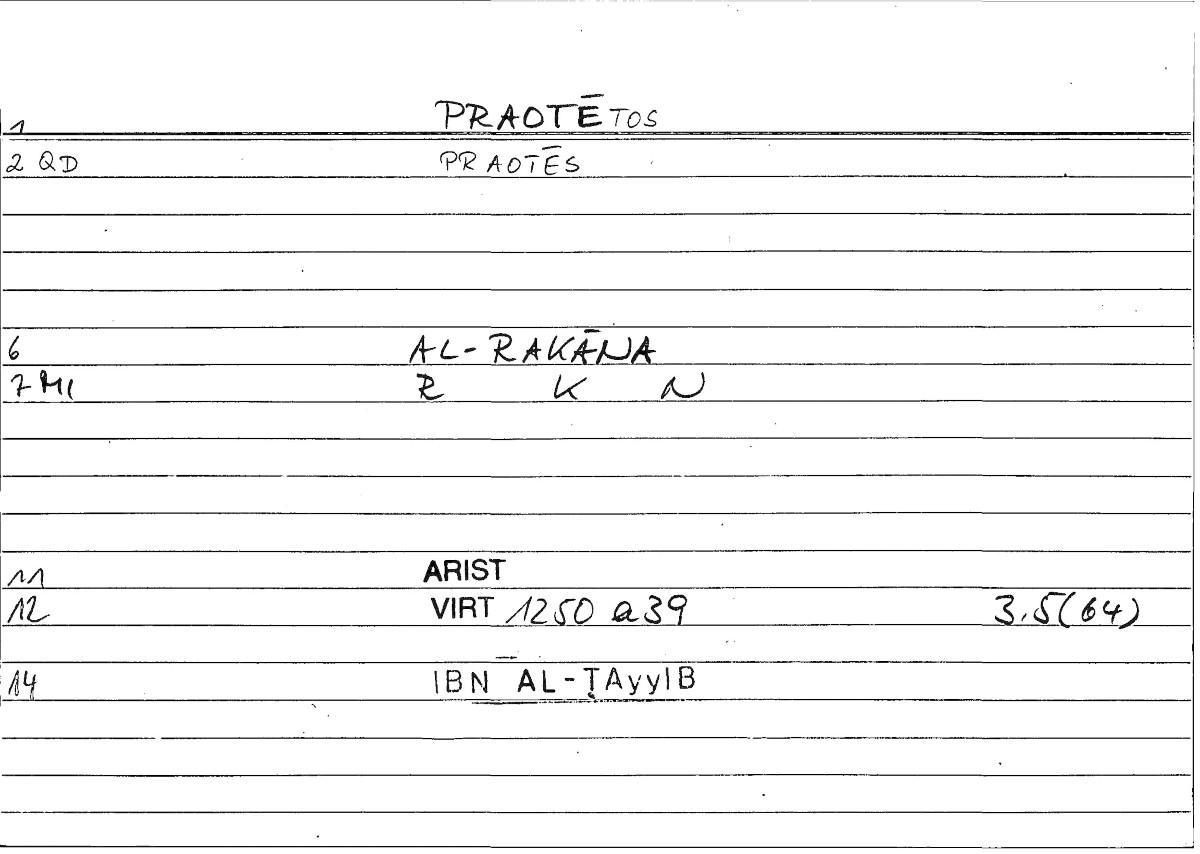 1 PRAOTĒTOS
2 QD PRAOTĒS
6 AL-RAKĀNA
7 MI R K N
11 ARIST
12 VIRT 1250 a39 3.5(64)
14 IBN AL-ṬAyyIB